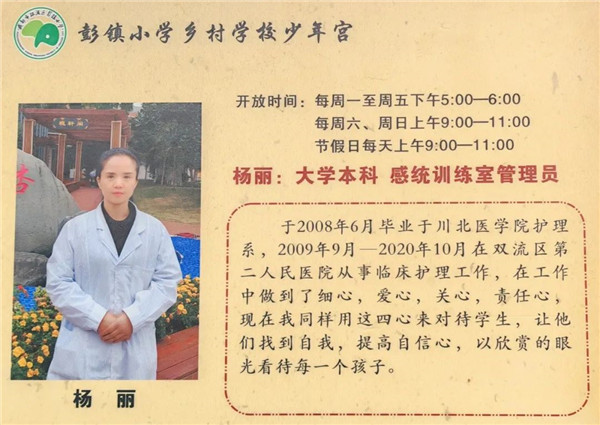 彭镇小学乡村学校少年宫
开放时间：每周一至周五下午5:00—6:00
每周六、周日上午9:00—11:00
节假日每天上午9:00—11:00
杨丽：大学本科 感统训练室管理员
于2008年6月毕业于川北医学院护理
系，2009年9月—2020年10月在双流区第
二人民医院从事临床护理工作，在工作
中做到了细心，爱心，关心，责任心，
现在我同样用这四心来对待学生，让他
们找到自我，提高自信心，以欣赏的眼
光看待每一个孩子。
杏
杨 丽